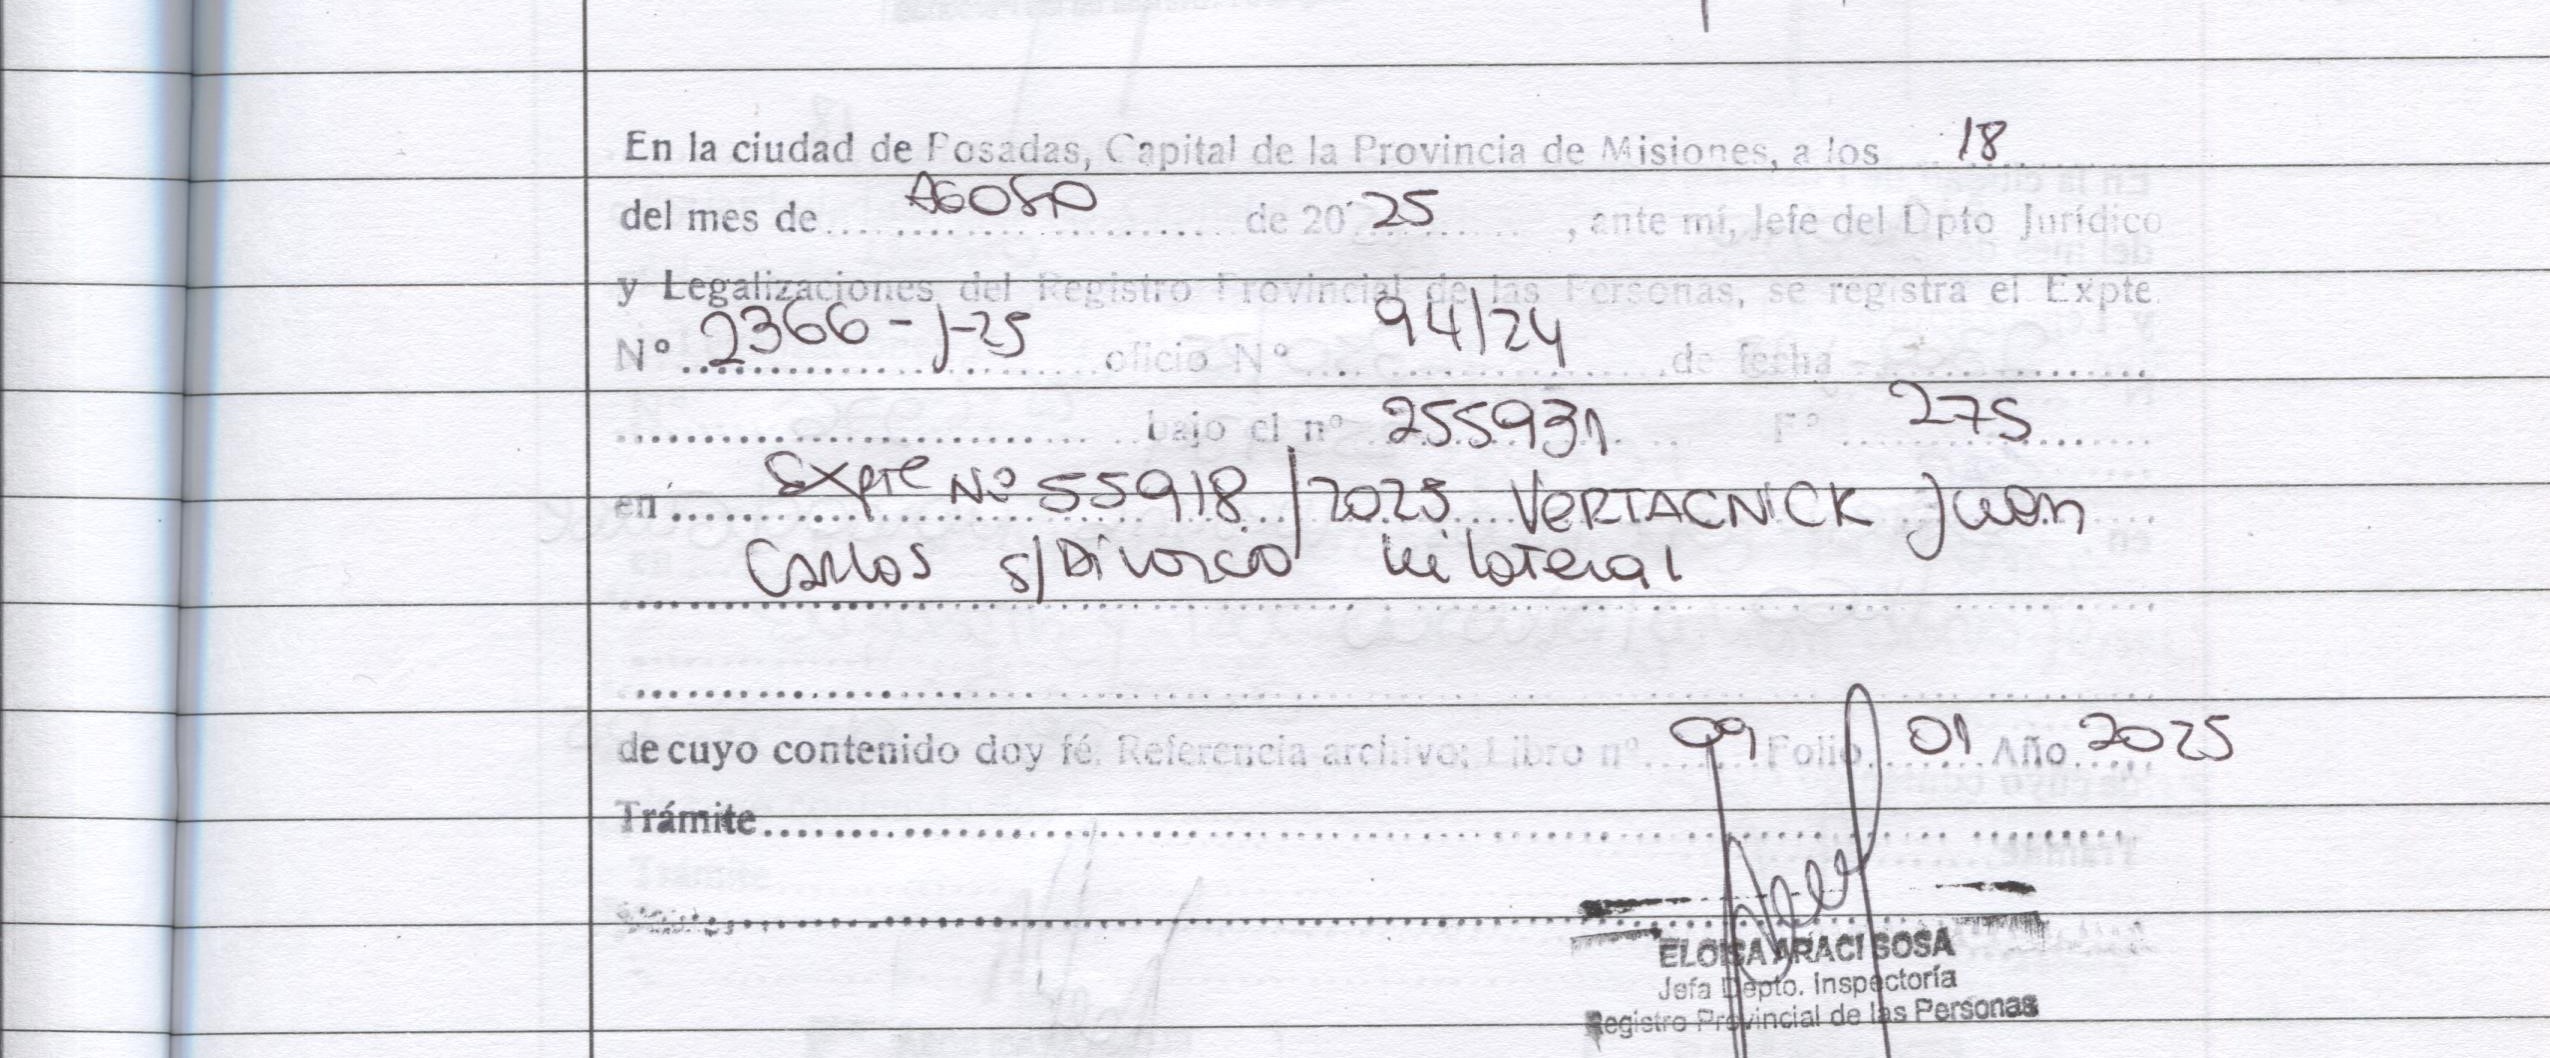 En la ciudad de Posadas, Capital de la Provincia de Misiones, a los 18
del mes de AGOSTO de 20 25, ante mí, Jefe del Dpto Jurídico
y Legalizaciones del Registro Provincial de las Personas, se registra el Expte.
N° 2366-J-25 oficio N° 94/24 de fecha
bajo el n° 255931 F° 275
en Expte Nº 55918/2025 VERTACNICK Juan
Carlos s/Divorcio Unilateral
de cuyo contenido doy fé. Referencia archivo; Libro n° 09 Folio 01 Año 2025
Trámite
ELOISA ARACI SOSA
Jefa Depto. Inspectoría
Registro Provincial de las Personas